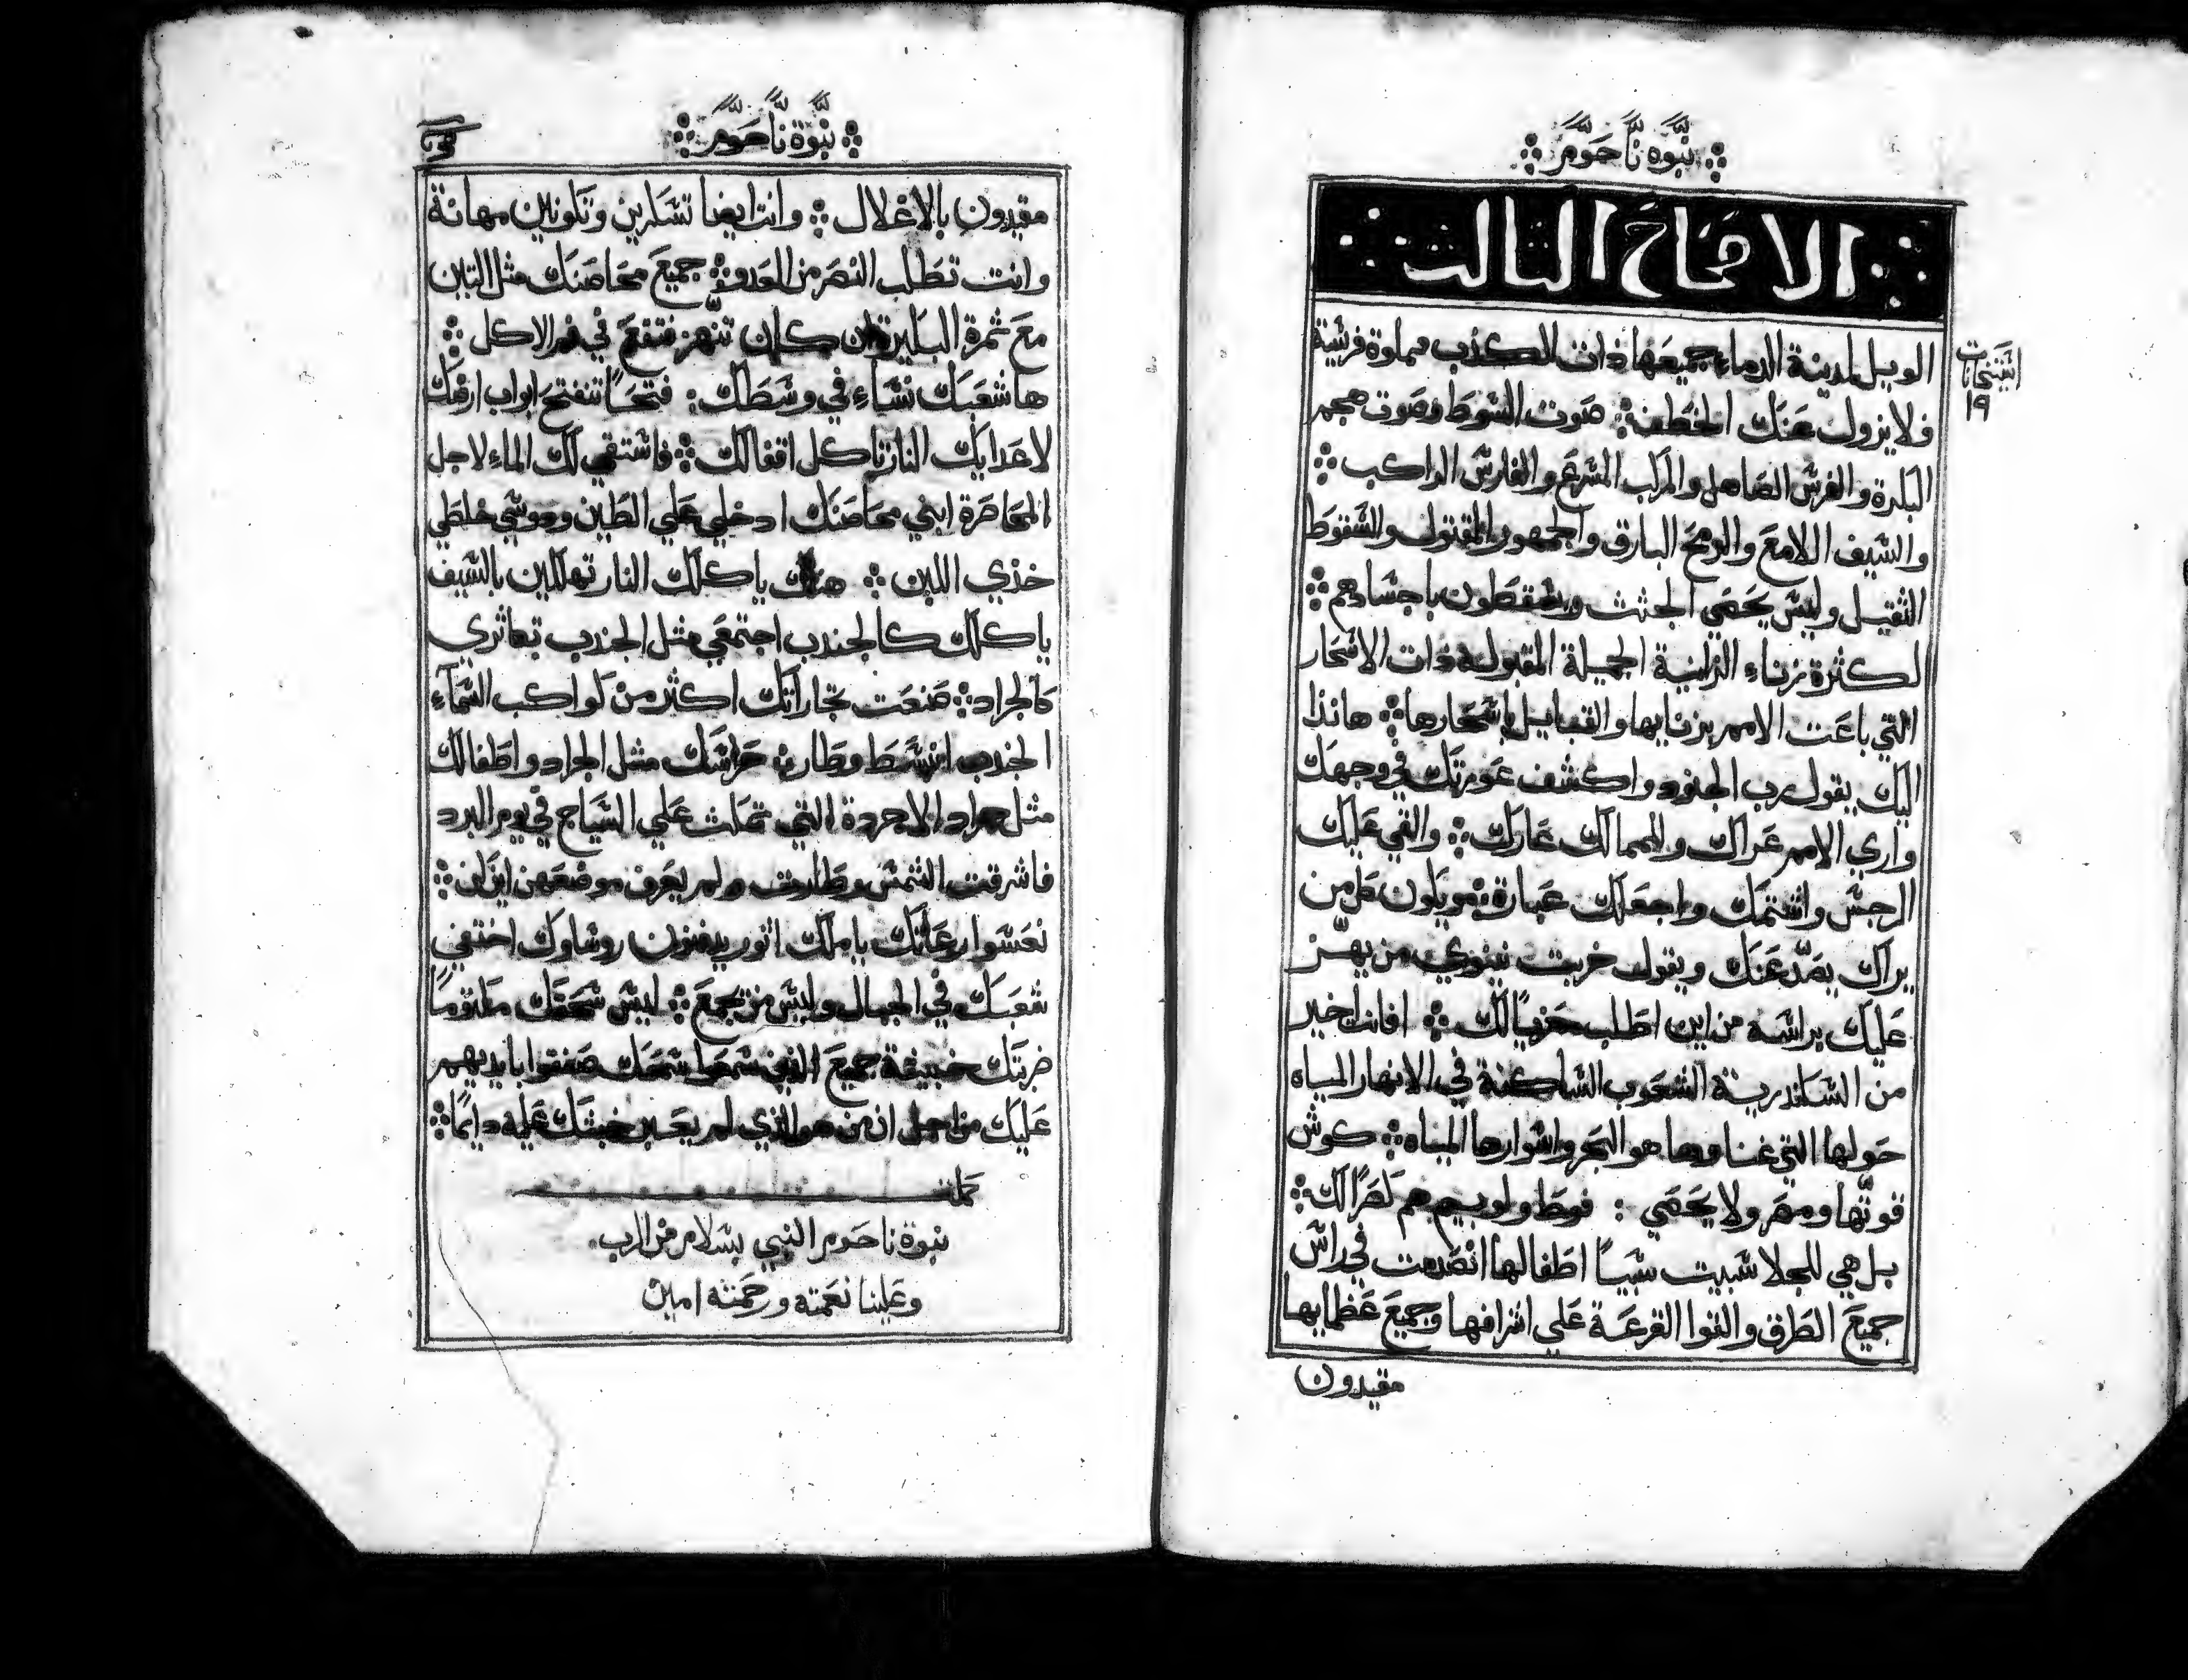 نبوه ناحوم
الاصحاح الثالث
الويل لمدينة الدماء جميعها ذات الكذب مملوة فرشية
استيحانات
١٩
فلا يزول عنك الخطف صوت السوط وصوت
البكرة والفرس الصاهل والمركب المسرع والفارس الراكب
والسيف اللامع والرمح البارق والجمهور المقتول والسقوط
الثقيل وليس يحصي الجثث ويسقطون باجسادهم
لكثرة زناء الزانية الجميلة المقبوله ذات الاسحار
التي باعت الامم بزنايها والقبايل باسحارها هانذا
اليك يقول رب الجنود واكشف عورتك في وجهك
واري الامم عراك والممالك عارك والقي عليك
الرجس واشتمك واجعلك عبارة ويكون كل من
يراك يصد عنك ويقول خربت نينوي من يهز
عليك براسه من اين اطلب حزيًا لك افانت اخير
من السكندرية الشعوب الساكنة في الانهار المياه
حولها التي غناوها هو البحر واسوارها المياه كوش
قوتها ومصر ولا يحصي فوط ولوبيم هم نصرًا لك
بل هي للجلا سبيت سبيًا اطفالها انصدمت في راس
جميع الطرق والقوا القرعة علي اشرافها وجميع عظمايها
مقيدون
نبوة ناحوم
مقيدون بالاغلال وانت ايضا تسكرين وتكونين مهانة
وانت تطلب النصر من العدو جميع محاصنك مثل التين
مع ثمرة البكيرة ان كان تنهز فتقع في فم الاكل
ها شعبك نساء في وسطك فتحًا تنفتح ابواب ارضك
لاعدايك النار تاكل اقفالك فاستقي لك الماء لاجل
المحاصرة ابني محاصنك ادخلي علي الطين ودوسي خلطي
خذي اللبن هناك ياكلك النار تهلكين بالسيف
ياكلك كالجندب اجتمعي مثل الجندب تعاثري
كالجراد صنعت تجاراتك اكثر من كواكب السماء
الجندب انبسط وطار حراسك مثل الجراد واطفالك
مثل جراد الاجردة التي تمكث علي السياج في يوم البرد
فاشرقت الشمس وطارت ولم يعرف موضعهن اين كن
نعسوا رعاتك يا ملك اثور يدفنون روساوك اختفي
شعبك في الجبال وليس من يجمع ليس سحقك مكتومًا
ضربتك خبيثة جميع الذين سمعوا سمعك صفقوا بايديهم
عليك من اجل ان من هو الذي لم يعبر خبثك عليه دايمًا
كملت
نبوة ناحوم النبي بسلام من الرب
وعلينا نعمته ورحمته امين